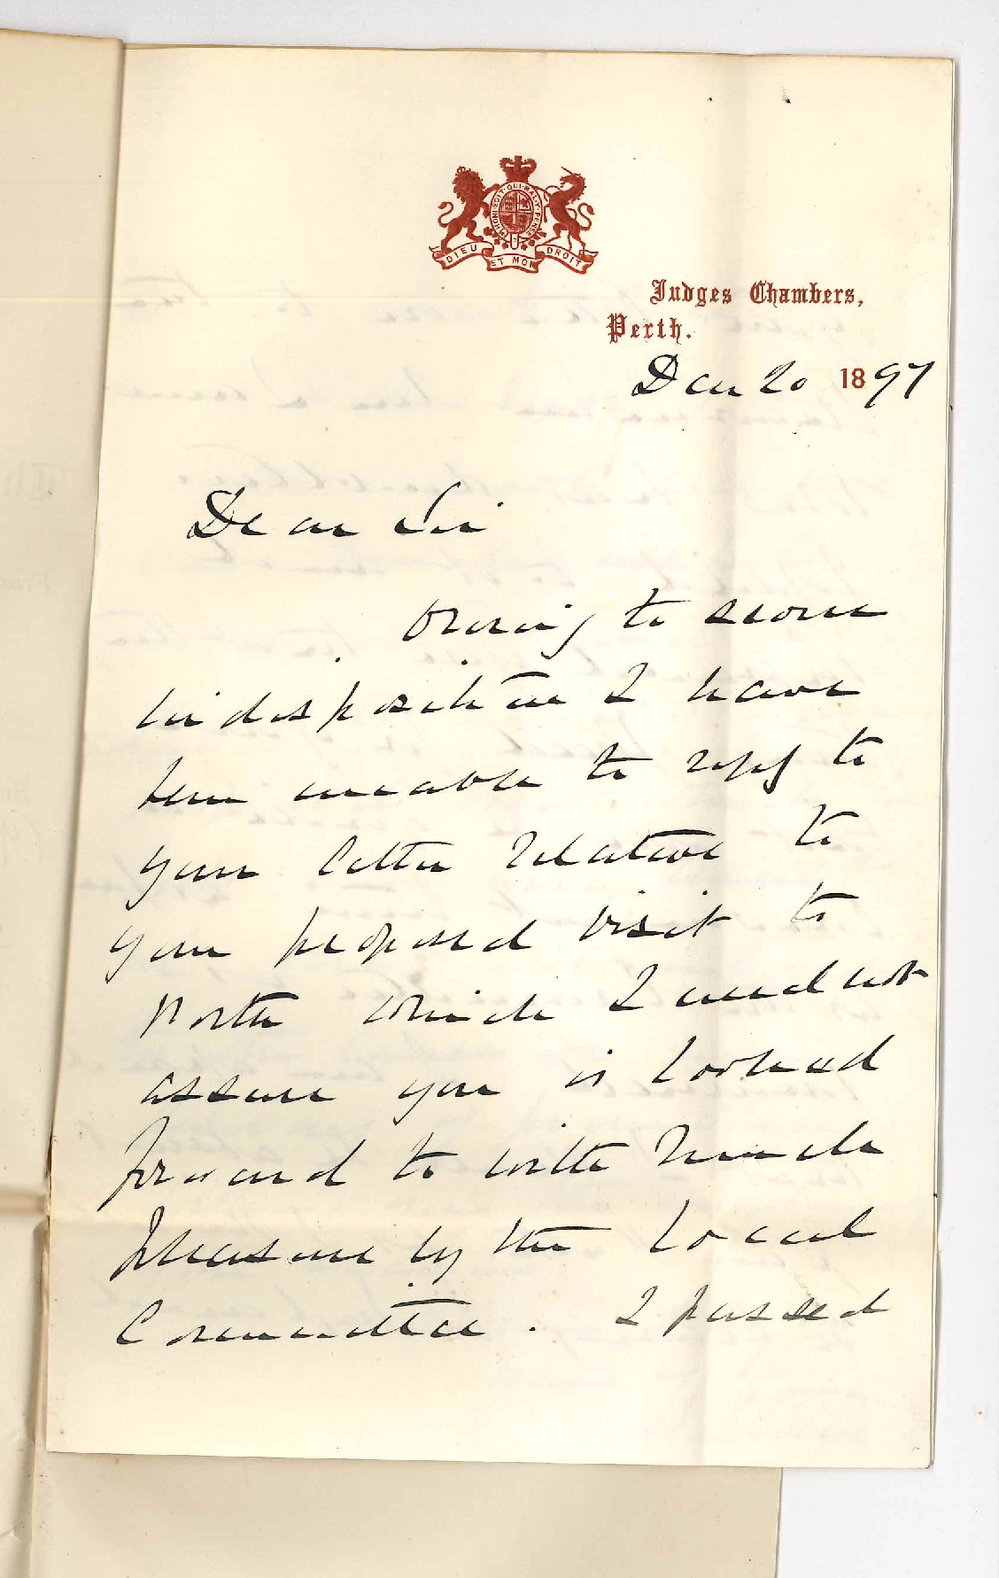 HONI·SOIT·QUI·MAL·Y·PENSE
DIEU ET MON DROIT
Judges Chambers,
Perth.
Dec 20 1897
Dear Sir
Owing to some
indisposition I have
been unable to reply to
your letter relative to
your proposed visit to
Perth which I need not
assure you is looked
forward to with much
pleasure by the local
Committee. I passed